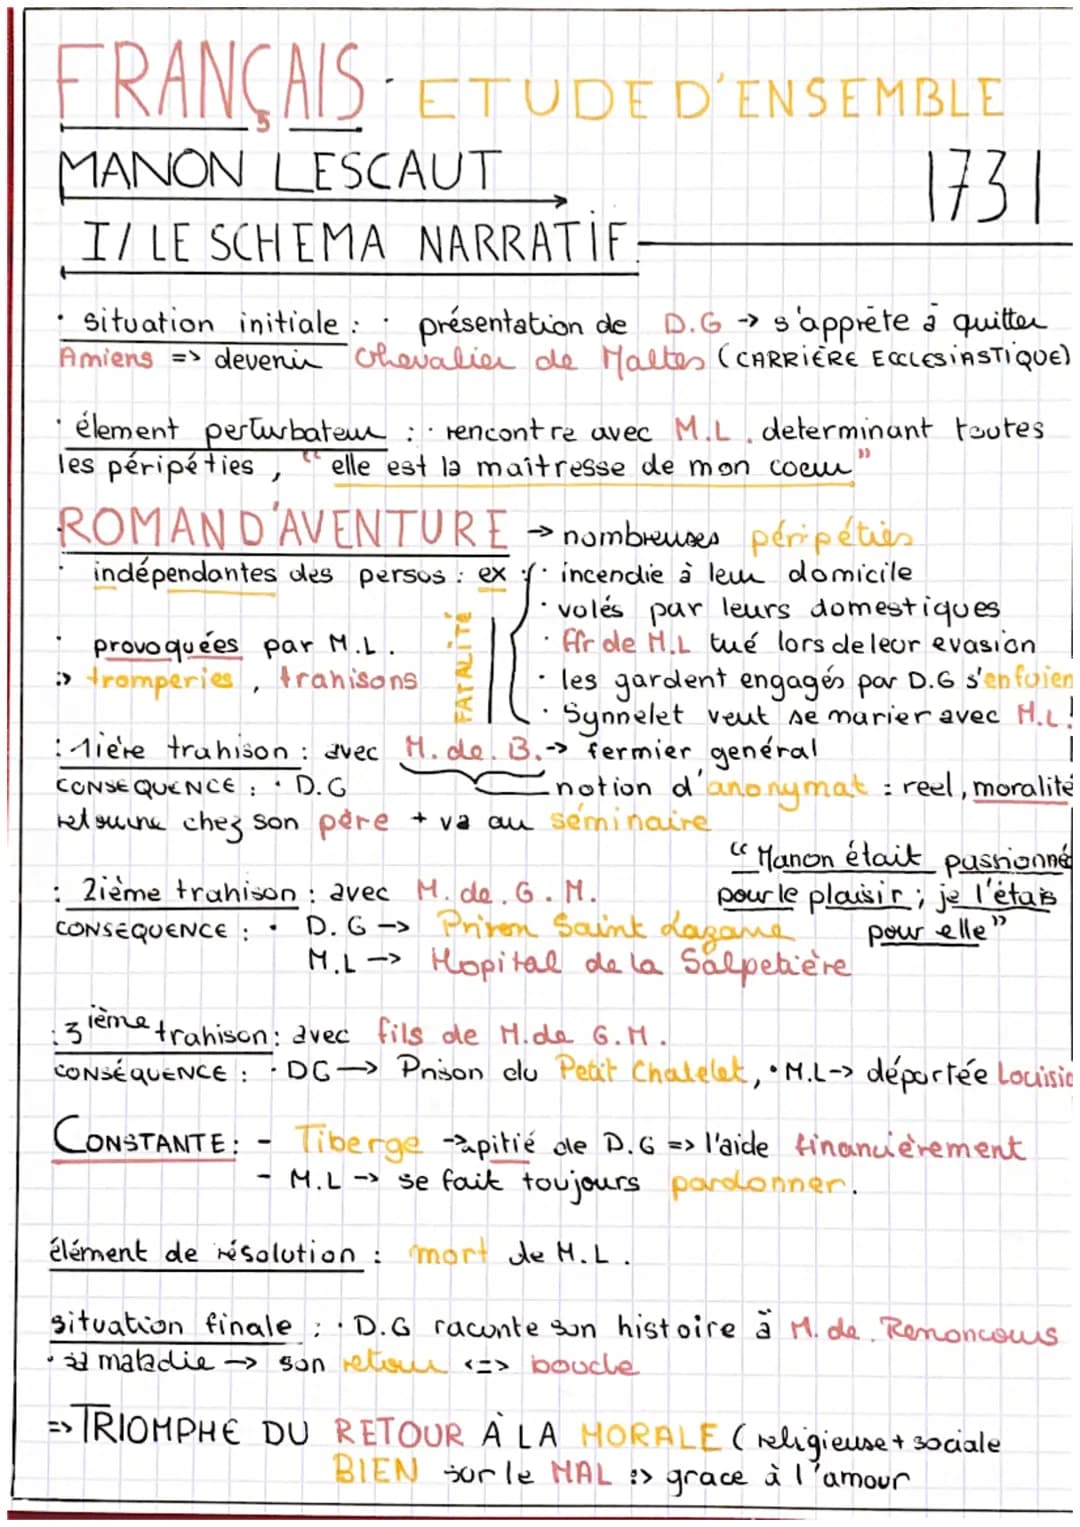 FRANÇAIS · ETUDE D'ENSEMBLE
MANON LESCAUT 1731
I/ LE SCHEMA NARRATIF
· situation initiale : · présentation de D.G → s'apprête à quitter
Amiens => devenir Chevalier de Maltes (CARRIÈRE ECCLESIASTIQUE)
· élement perturbateur : · rencontre avec M.L. determinant toutes
les péripéties, "elle est la maîtresse de mon coeur"
ROMAN D'AVENTURE → nombreuses péripéties
· indépendantes des persos : ex : · incendie à leur domicile
· volés par leurs domestiques
· provoquées par M.L. · ffr de M.L tué lors de leur evasion
=> tromperies, trahisons · les gardent engagés par D.G s'enfuien
FATALITÉ
· Synnelet veut se marier avec M.L!
: 1ière trahison : avec M. de. B. → fermier genéral
CONSEQUENCE : · D.G notion d'anonymat : reel, moralité
retourne chez son père + va au séminaire
"Manon était passionné
: 2ième trahison : avec M. de. G. M. pour le plaisir ; je l'étais
CONSEQUENCE : · D.G → Prison Saint Lazare pour elle"
M.L → Hopital de la Salpetière
: 3ième trahison : avec fils de M. de G.M.
CONSÉQUENCE : · DG → Prison du Petit Chatelet, · M.L → déportée Louisia
CONSTANTE : - Tiberge → apitié de D.G => l'aide financièrement
- M.L → se fait toujours pardonner.
élément de résolution : mort de M.L.
situation finale : · D.G raconte son histoire à M. de. Renoncours
· sa maladie → son retour <=> boucle
=> TRIOMPHE DU RETOUR À LA MORALE (religieuse + sociale
BIEN sur le MAL => grace à l'amour